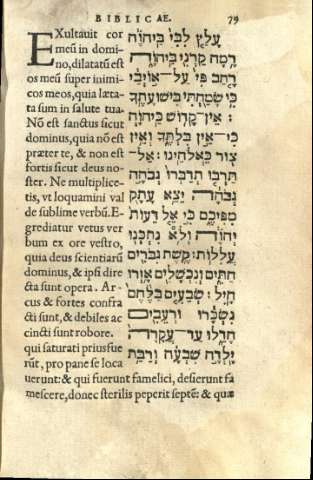 BIBLICAE. 79
EXultauit cor
meũ in domi-
no, dilatatũ est
os meũ super inimi
cos meos, quia læta-
ta sum in salute tua.
Nõ est sanctus sicut
dominus, quia nõ est
præter te, & non est
fortis sicut deus no-
ster. Ne multiplice-
tis, vt loquamini val
de sublime verbũ. E-
grediatur vetus ver
bum ex ore vestro,
quia deus scientiarũ
dominus, & ipsi dire
cta sunt opera. Ar-
cus & fortes confra
cti sunt, & debiles ac
cincti sunt robore.
qui saturati prius fue
rũt, pro pane se loca
uerunt: & qui fuerunt famelici, desierunt fa
mescere, donec sterilis peperit septẽ: & quæ
עָלַץ לִבִּי בַּיהוָֹה
רָמָה קַרְנִי בַּיהוָֹה
רָחַב פִּי עַל־אוֹיְבַי
כִּי שָׂמַחְתִּי בִּישׁוּעָתֶךָ
: אֵין־קָדוֹשׁ כַּיהוָֹה
כִּי־אֵין בִּלְתֶּךָ וְאֵין
צוּר כֵּאלֹהֵינוּ : אַל־
תַּרְבּוּ תְדַבְּרוּ גְּבֹהָה
גְבֹהָה יֵצֵא עָתָק
מִפִּיכֶם כִּי אֵל דֵּעוֹת
יְהוָֹה וְלֹא נִתְכְּנוּ
עֲלִלוֹת : קֶשֶׁת גִּבֹּרִים
חַתִּים וְנִכְשָׁלִים אָזְרוּ
חָיִל : שְׂבֵעִים בַּלֶּחֶם
נִשְׂכָּרוּ וּרְעֵבִים
חָדֵלּוּ עַד־עֲקָרָה
יָלְדָה שִׁבְעָה וְרַבַּת